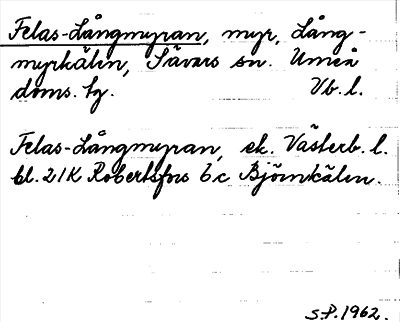 Felas-Långmyran, myr, Lång-
myrkälen, Sävars sn. Umeå
doms. tg. Vb. l.
Felas-Långmyran, ek. Västerb. l.
bl. 21K Robertsfors 6c Björnkälen.
S.P. 1962.